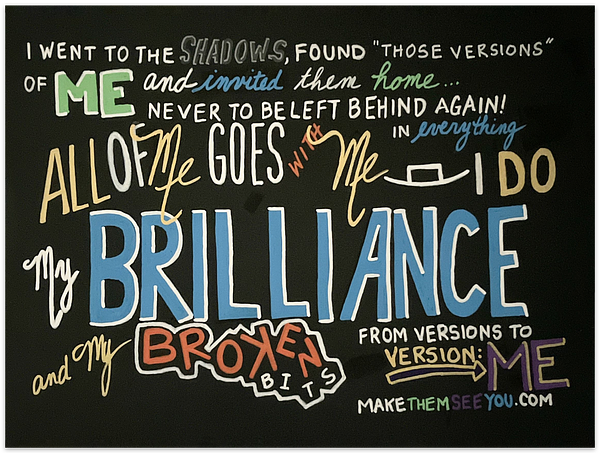 I WENT TO THE SHADOWS, FOUND "THOSE VERSIONS"
OF ME and invited them home...
NEVER TO BE LEFT BEHIND AGAIN!
ALL OF Me GOES WITH Me IN everything I DO
My BRILLIANCE
and My BROKEN BITS
FROM VERSIONS TO
VERSION: ME
MAKETHEMSEEYOU.COM